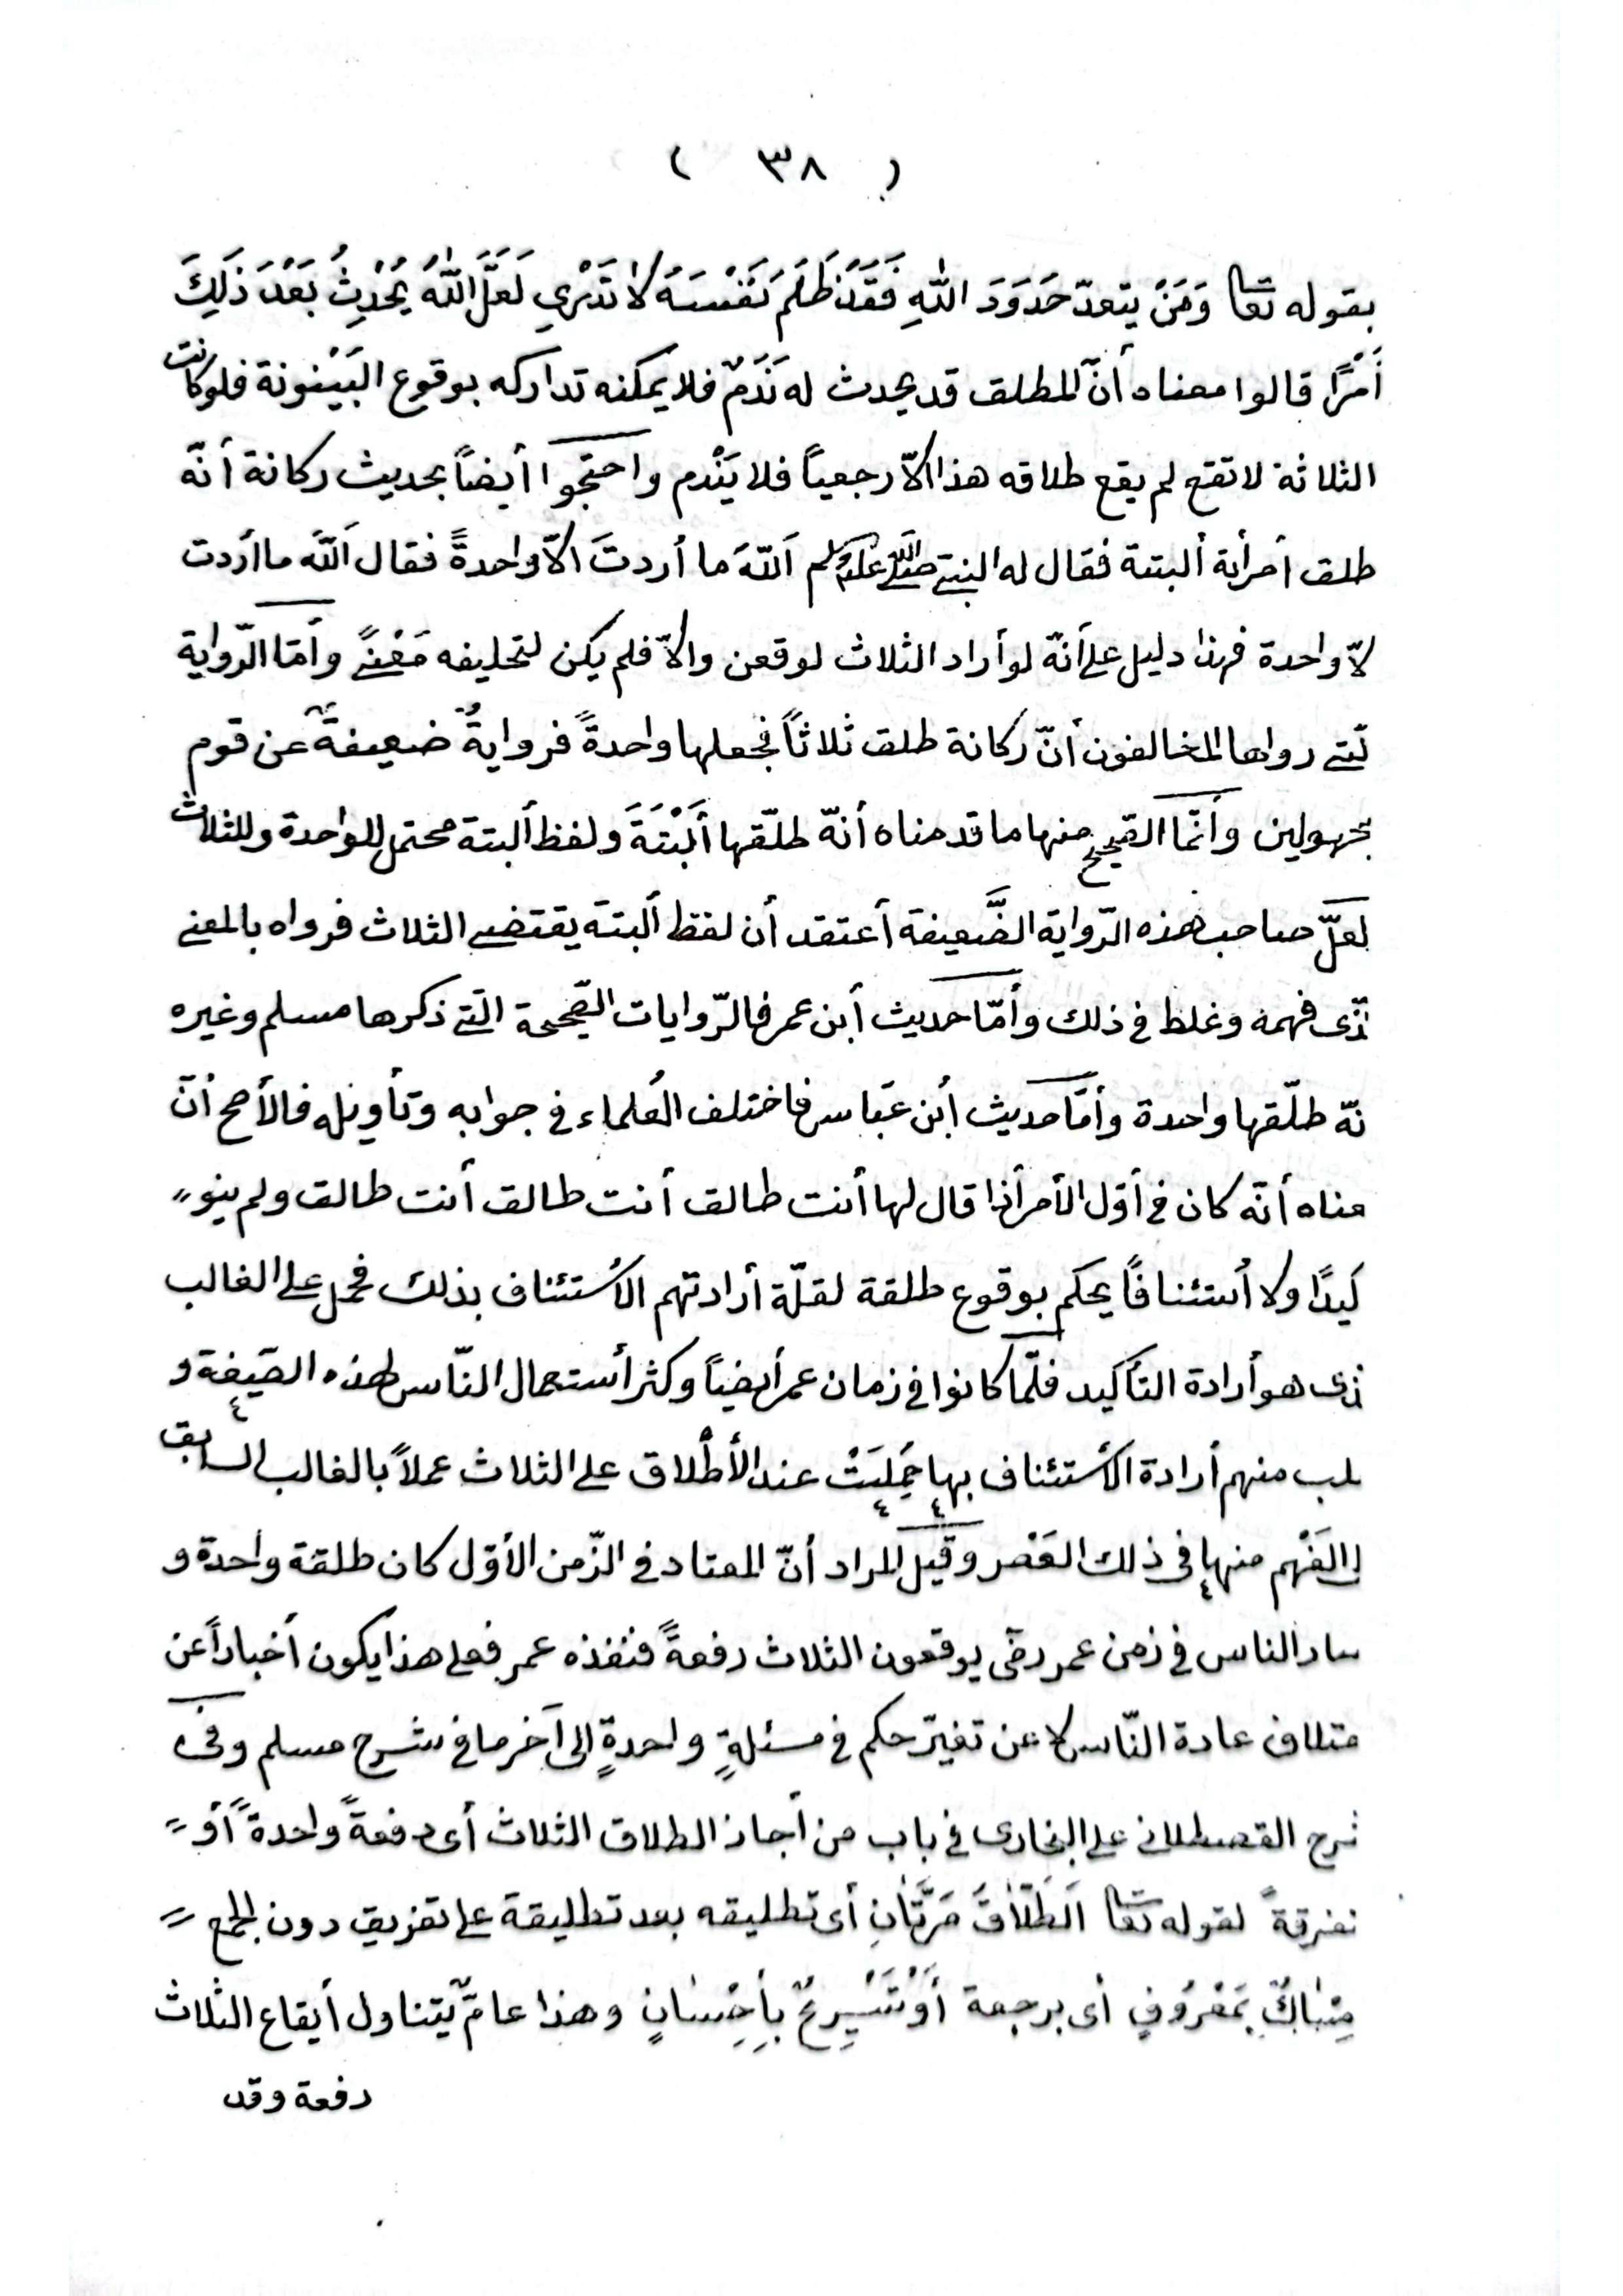 ( ٣٨ )
بقوله تعا وَمَنْ يتعدّ حَدَودَ اللهِ فَقَدْ ظَلَمَ نَفْسَهُ لا تَدْرِي لَعَلَّ اللهُ يُحْدِثُ بَعْدَ ذَلِكَ
أَمْرًا قالوا معناه أنّ المطلق قد يحدث له نَدَمٌ فلا يمكنه تداركه بوقوع البَيْنونة فلو كانت
الثلاثة لا تقع لم يقع طلاقه هذا الاّ رجعياً فلا يَنْدم واحتجوا أيضاً بحديث ركانة أنّه
طلق أمرأية ألبتة فقال له النبي صلى الله عليه وسلم اَللهَ ما أردتَ الاّ واحدةً فقال اَللهَ ما أردت
لاّ واحدة فهذا دليل على أنّه لو أراد الثلاث لوقعن والاّ فلم يكن لتحليفه مَعْنىً وأمّا الرّواية
لّتي رواها المخالفون أنّ ركانة طلق ثلاثاً فجعلها واحدةً فروايةٌ ضعيفةٌ عن قوم
مجهولين وأنّما الصّحيح منها ما قدمناه أنّه طلّقها أَلْبَتَةَ ولفظ ألبتة محتمل للواحدة وللثلاث
لعلّ صاحب هذه الرّواية الضَّعيفة أعتقد أن لفظ ألبتة يقتضي الثلاث فرواه بالمعنى
لّذى فهمه وغلط في ذلك وأمّا حديث أبن عمر فالرّوايات الصّحيحة الّتي ذكرها مسلم وغيره
نّه طلّقها واحدة وأمّا حديث أبن عبّاس فاختلف العُلماء في جوابه وتأويله فالأصح أنّ
عناه أنّه كان في أوّل الأمر أذا قال لها أنت طالق أنت طالق أنت طالق ولم ينو
كيدًا ولا أستئنافًا يحكم بوقوع طلقة لقلّة أرادتهم الأستئناف بذلك فحمل على الغالب
لذى هو أرادة التأكيد فلّما كانوا في زمان عمر أيضاً وكثر أستعمال النّاس لهذه الصّيغة و
لب منهم أرادة الأستئناف بها حُمِلَتْ عند الأطْلاق على الثلاث عملاً بالغالب السابق
لى الفَهْم منها في ذلك العَصْر وقيل المراد أنّ المعتاد في الزّمن الأوّل كان طلقة واحدة و
سار الناس في زمن عمر رضى يوقعون الثلاث دفعةً فنفذه عمر فعلى هذا يكون أخباراً عن
ختلاف عادة النّاس لا عن تغيّر حكم في مسئلةٍ واحدةٍ الى آخر ما في شرح مسلم وفى
شرح القصطلانى على البخارى في باب من أجاز الطلاق الثلاث أى دفعةً واحدةً أو
تفرقةً لقوله تعا اَلطَّلاقُ مَرَّتَانِ أى تطليقه بعد تطليقة على تفريق دون الجمع
مْسَاكٌ بِمَعْرُوفٍ أى برجعة أَوْ تَسْرِيحٌ بِأِحْسَانٍ وهذا عامّ يّتناول أيقاع الثلاث
دفعة وقد